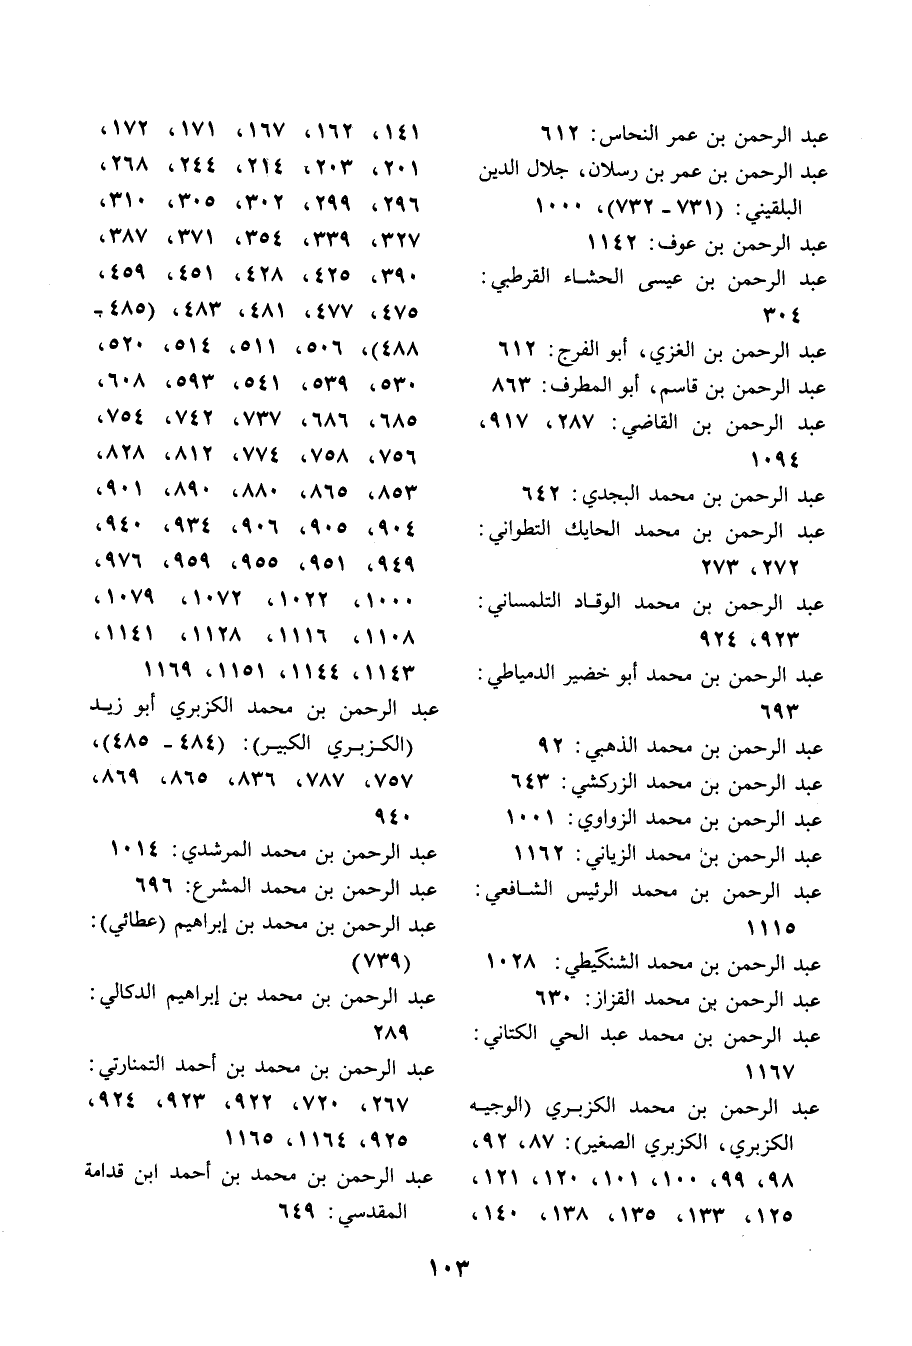 عبد الرحمن بن عمر النحاس: ٦١٢
عبد الرحمن بن عمر بن رسلان، جلال الدين
البلقيني: (٧٣١ - ٧٣٢)، ١٠٠٠
عبد الرحمن بن عوف: ١١٤٢
عبد الرحمن بن عيسى الحشاء القرطبي:
٣٠٤
عبد الرحمن بن الغزي، أبو الفرج: ٦١٢
عبد الرحمن بن قاسم، أبو المطرف: ٨٦٣
عبد الرحمن بن القاضي: ٢٨٧، ٩١٧،
١٠٩٤
عبد الرحمن بن محمد البجدي: ٦٤٢
عبد الرحمن بن محمد الحايك التطواني:
٢٧٢، ٢٧٣
عبد الرحمن بن محمد الوقاد التلمساني:
٩٢٣، ٩٢٤
عبد الرحمن بن محمد أبو خضير الدمياطي:
٦٩٣
عبد الرحمن بن محمد الذهبي: ٩٢
عبد الرحمن بن محمد الزركشي: ٦٤٣
عبد الرحمن بن محمد الزواوي: ١٠٠١
عبد الرحمن بن محمد الزياني: ١١٦٢
عبد الرحمن بن محمد الرئيس الشافعي:
١١١٥
عبد الرحمن بن محمد الشنكيطي: ١٠٢٨
عبد الرحمن بن محمد القزاز: ٦٣٠
عبد الرحمن بن محمد عبد الحي الكتاني:
١١٦٧
عبد الرحمن بن محمد الكزبري (الوجيه
الكزبري، الكزبري الصغير): ٨٧، ٩٢،
٩٨، ٩٩، ١٠٠، ١٠١، ١٢٠، ١٢١،
١٢٥، ١٣٣، ١٣٥، ١٣٨، ١٤٠،
١٤١، ١٦٢، ١٦٧، ١٧١، ١٧٢،
٢٠١، ٢٠٣، ٢١٤، ٢٤٤، ٢٦٨،
٢٩٦، ٢٩٩، ٣٠٢، ٣٠٥، ٣١٠،
٣٢٧، ٣٣٩، ٣٥٤، ٣٧١، ٣٨٧،
٣٩٠، ٤٢٥، ٤٢٨، ٤٥١، ٤٥٩،
٤٧٥، ٤٧٧، ٤٨١، ٤٨٣، (٤٨٥ -
٤٨٨)، ٥٠٦، ٥١١، ٥١٤، ٥٢٠،
٥٣٠، ٥٣٩، ٥٤١، ٥٩٣، ٦٠٨،
٦٨٥، ٦٨٦، ٧٣٧، ٧٤٢، ٧٥٤،
٧٥٦، ٧٥٨، ٧٧٤، ٨١٢، ٨٢٨،
٨٥٣، ٨٦٥، ٨٨٠، ٨٩٠، ٩٠١،
٩٠٤، ٩٠٥، ٩٠٦، ٩٣٤، ٩٤٠،
٩٤٩، ٩٥١، ٩٥٥، ٩٥٩، ٩٧٦،
١٠٠٠، ١٠٢٢، ١٠٧٢، ١٠٧٩،
١١٠٨، ١١١٦، ١١٢٨، ١١٤١،
١١٤٣، ١١٤٤، ١١٥١، ١١٦٩
عبد الرحمن بن محمد الكزبري أبو زيد
(الكزبري الكبير): (٤٨٤ - ٤٨٥)،
٧٥٧، ٧٨٧، ٨٣٦، ٨٦٥، ٨٦٩،
٩٤٠
عبد الرحمن بن محمد المرشدي: ١٠١٤
عبد الرحمن بن محمد المشرع: ٦٩٦
عبد الرحمن بن محمد بن إبراهيم (عطائي):
(٧٣٩)
عبد الرحمن بن محمد بن إبراهيم الدكالي:
٢٨٩
عبد الرحمن بن محمد بن أحمد التمنارتي:
٢٦٧، ٧٢٠، ٩٢٢، ٩٢٣، ٩٢٤،
٩٢٥، ١١٦٤، ١١٦٥
عبد الرحمن بن محمد بن أحمد ابن قدامة
المقدسي: ٦٤٩
١٠٣